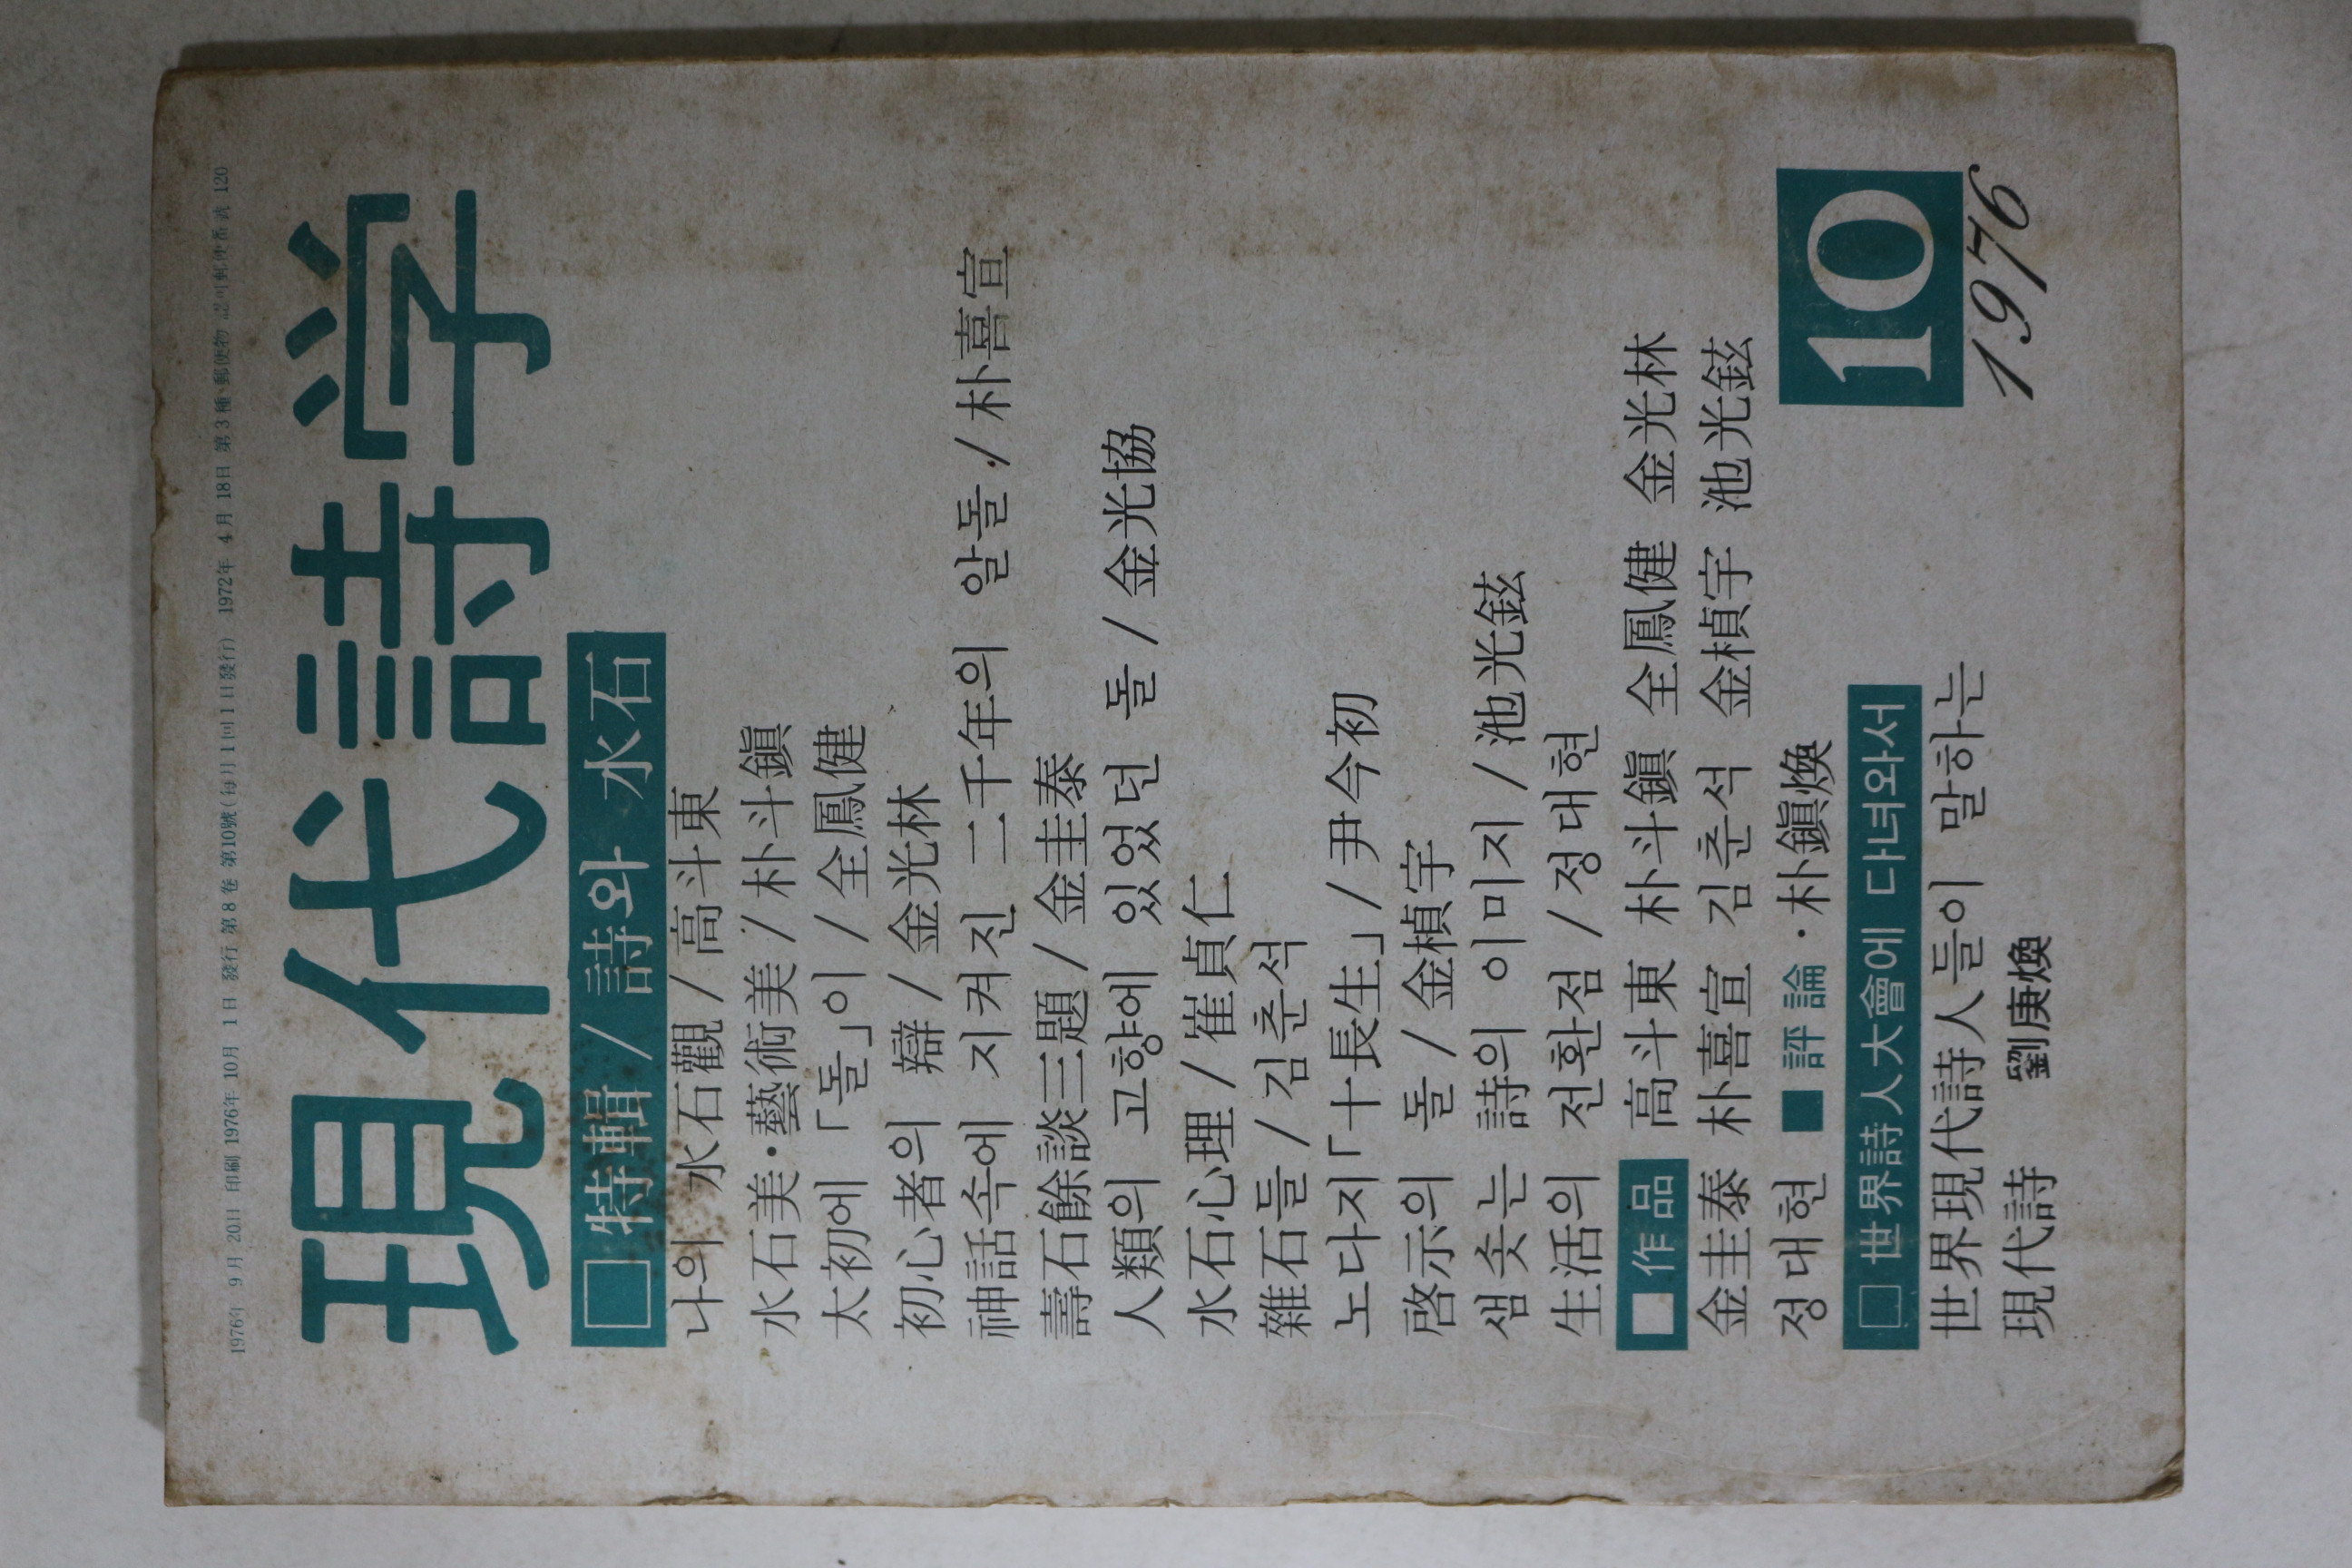 1976年 9月 20日 印刷 1976年 10月 1日 發行 第8卷 第10號(每月1回1日發行) 1972年 4月 18日 第3種郵便物 番號 120
現代詩学
□特輯/詩와 水石
나의 水石觀/高斗東
水石美·藝術美/朴斗鎭
太初에「돌」이/全鳳健
初心者의 辯/金光林
神話속에 지켜진 二千年의 알돌/朴喜宣
壽石餘談三題/金圭泰
人類의 고향에 있었던 돌/金光協
水石心理/崔貞仁
雜石들/김춘석
노다지「十長生」/尹今初
啓示의 돌/金楨宇
샘솟는 詩의 이미지/池光鉉
生活의 전환점/정대현
□作品 高斗東 朴斗鎭 全鳳健 金光林
金圭泰 朴喜宣 김춘석 金楨宇 池光鉉
정대현 ■評論·朴鎭煥
□世界詩人大會에 다녀와서
世界現代詩人들이 말하는
現代詩 劉庚煥
10
1976